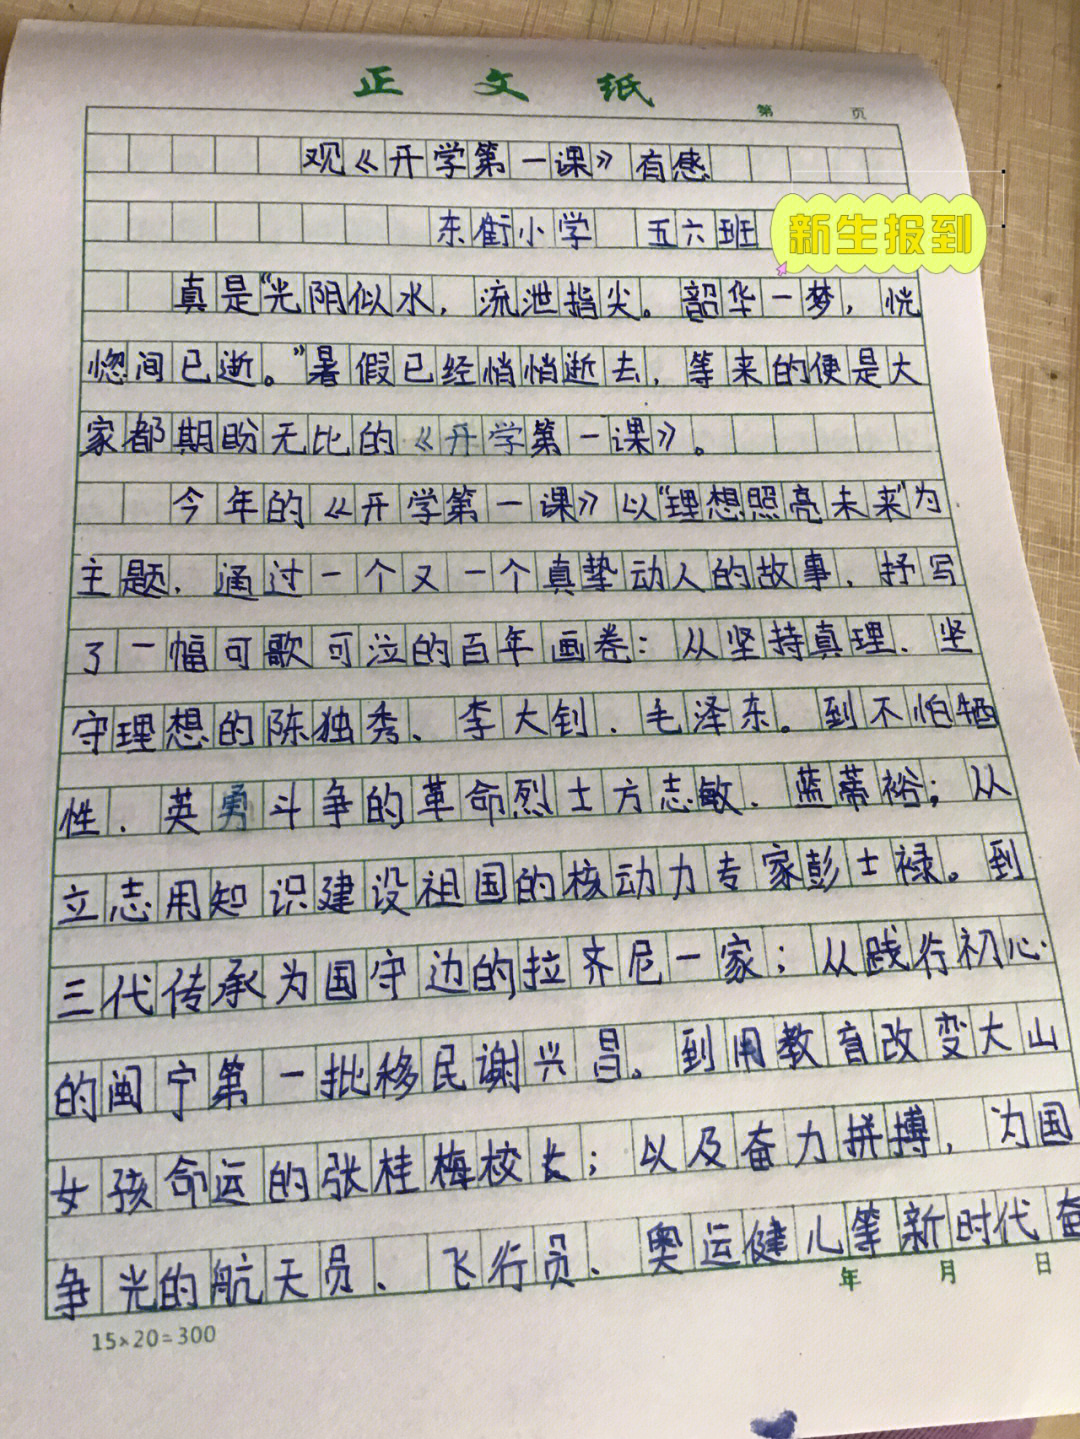 正文纸
第 页
观《开学第一课》有感
东街小学 五六班
新生报到
真是“光阴似水，流泄指尖。韶华一梦，恍
惚间已逝。”暑假已经悄悄逝去，等来的便是大
家都期盼无比的《开学第一课》。
今年的《开学第一课》以“理想照亮未来”为
主题，通过一个又一个真挚动人的故事，抒写
了一幅可歌可泣的百年画卷：从坚持真理、坚
守理想的陈独秀、李大钊、毛泽东。到不怕牺
性、英勇斗争的革命烈士方志敏、蓝蒂裕；从
立志用知识建设祖国的核动力专家彭士禄。到
三代传承为国守边的拉齐尼一家；从践行初心
的闽宁第一批移民谢兴昌。到用教育改变大山
女孩命运的张桂梅校长；以及奋力拼搏，为国
争光的航天员、飞行员、奥运健儿等新时代奋
年 月 日
15×20=300